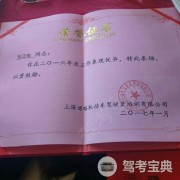 荣誉证书
同志:
你在二〇一六年度工作表现优秀,特此表扬,
以资鼓励。
上海 机动车驾驶员培训有限公司
二〇一七年一月
驾考宝典